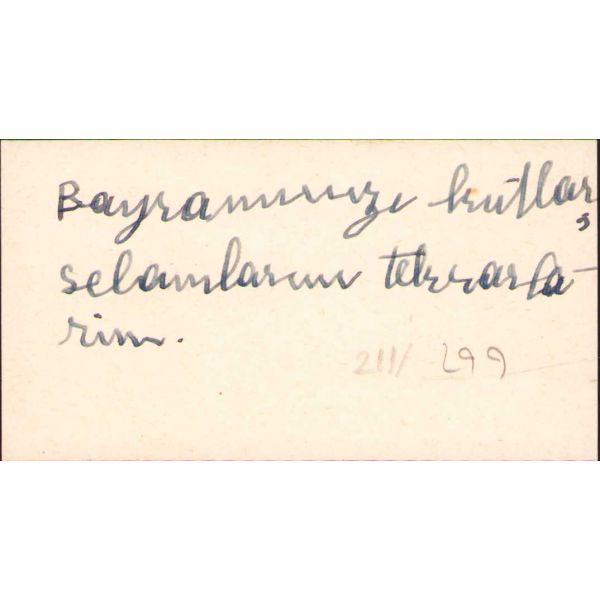 Bayramınızı kutlar,
selamlarımı tekrarla-
rım.
211/ 299